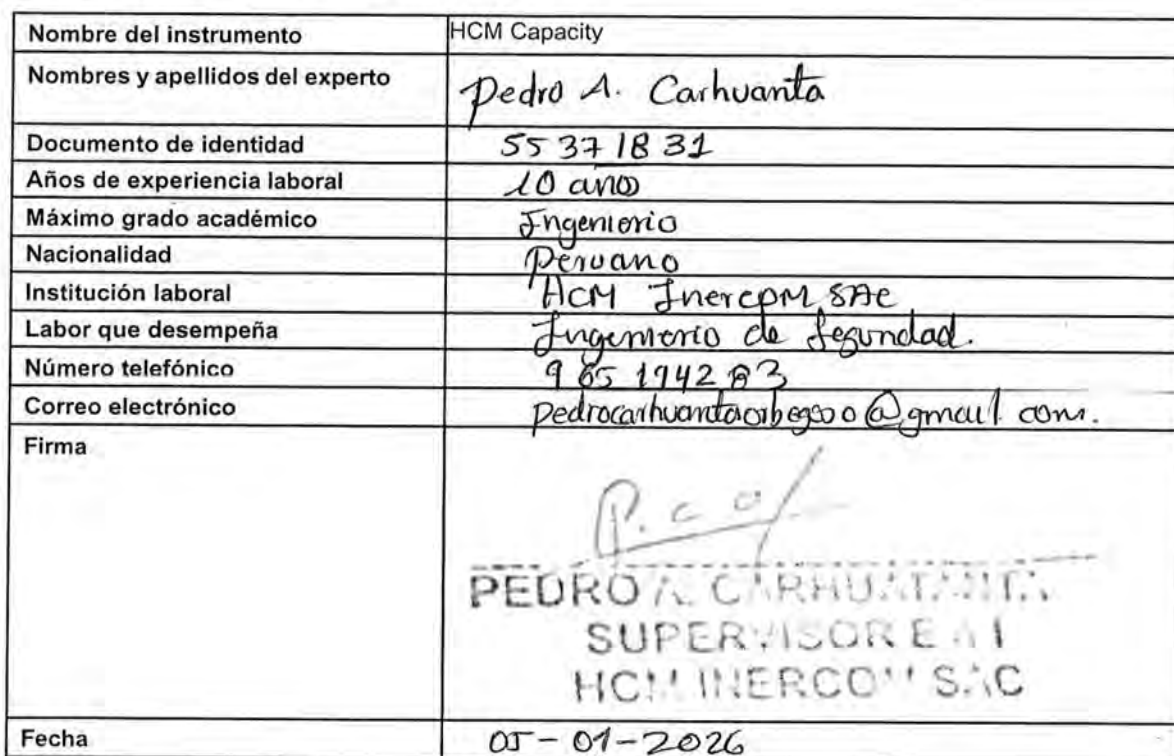 Nombre del instrumento HCM Capacity
Nombres y apellidos del experto Pedro A. Carhuanta
Documento de identidad 55371831
Años de experiencia laboral 10 años
Máximo grado académico Ingenierio
Nacionalidad Peruano
Institución laboral HCM Inercom SAC
Labor que desempeña Ingenierio de Seguridad.
Número telefónico 965194283
Correo electrónico @gmail com.
Firma
P. c o
PEDRO A. 
SUPERVISOR
HCM INERCOM SAC
Fecha 05-01-2026